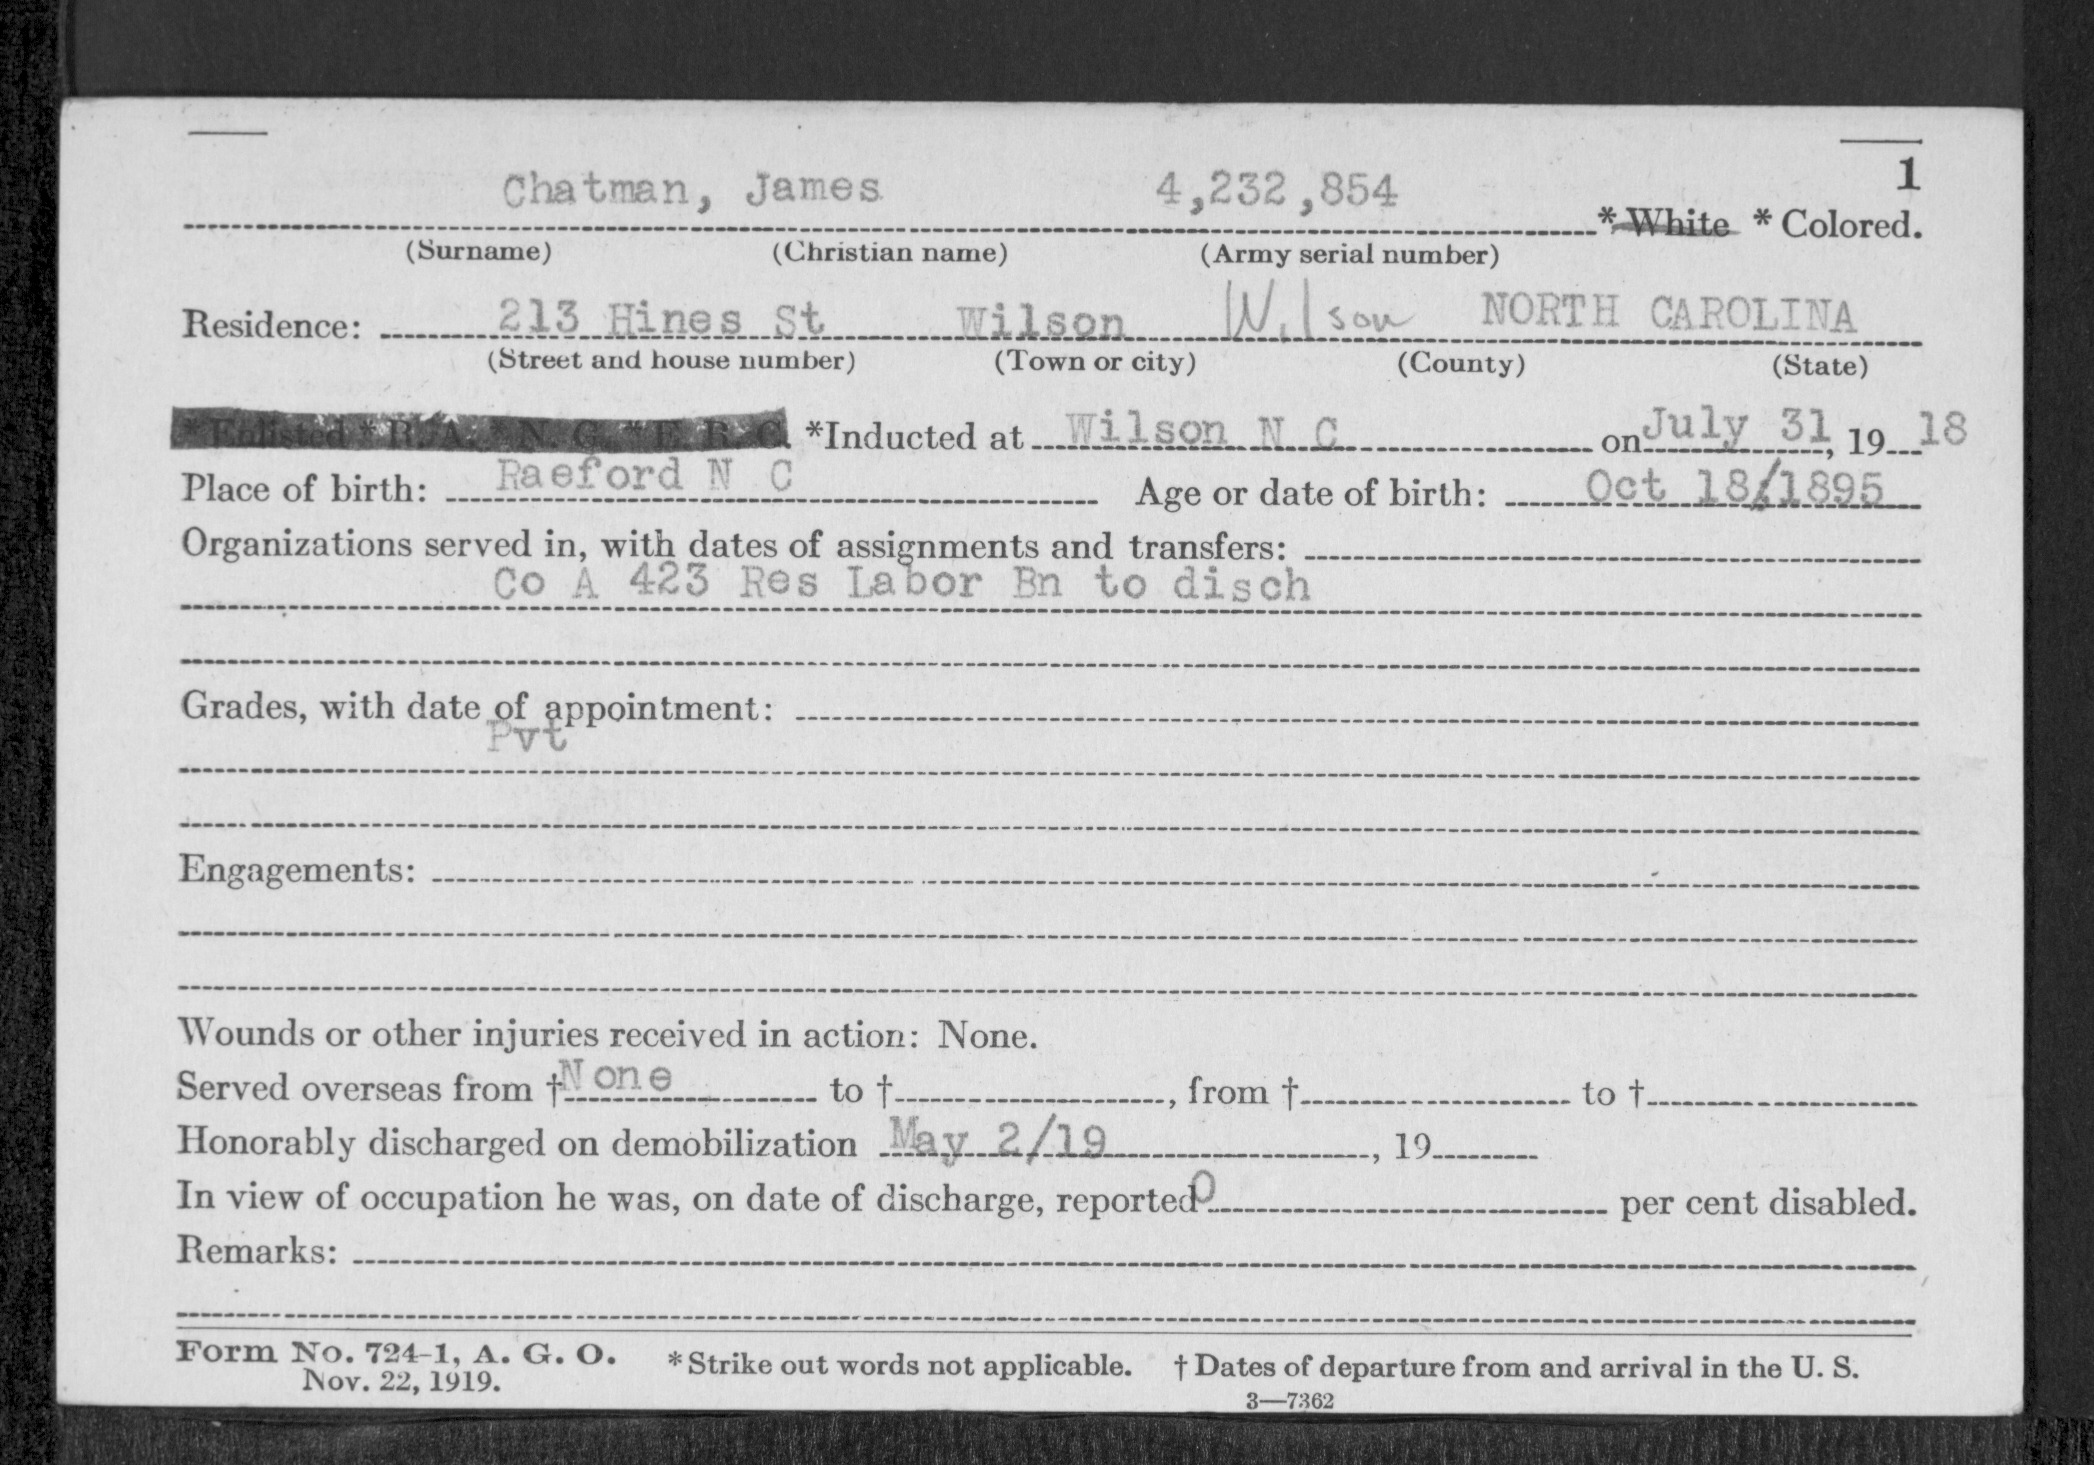 1
Chatman, James 4,232,854 *White *Colored.
(Surname) (Christian name) (Army serial number)
Residence: 213 Hines St Wilson Wilson NORTH CAROLINA
(Street and house number) (Town or city) (County) (State)
*Enlisted *R. A. *N. G. *E. R. C. *Inducted at Wilson N C on July 31, 19 18
Place of birth: Raeford N C Age or date of birth: Oct 18/1895
Organizations served in, with dates of assignments and transfers:
Co A 423 Res Labor Bn to disch
Grades, with date of appointment:
Pvt
Engagements:
Wounds or other injuries received in action: None.
Served overseas from †None to †, from † to †
Honorably discharged on demobilization May 2/19, 19
In view of occupation he was, on date of discharge, reported 0 per cent disabled.
Remarks:
Form No. 724-1, A. G. O. *Strike out words not applicable. †Dates of departure from and arrival in the U. S.
Nov. 22, 1919.
3—7362